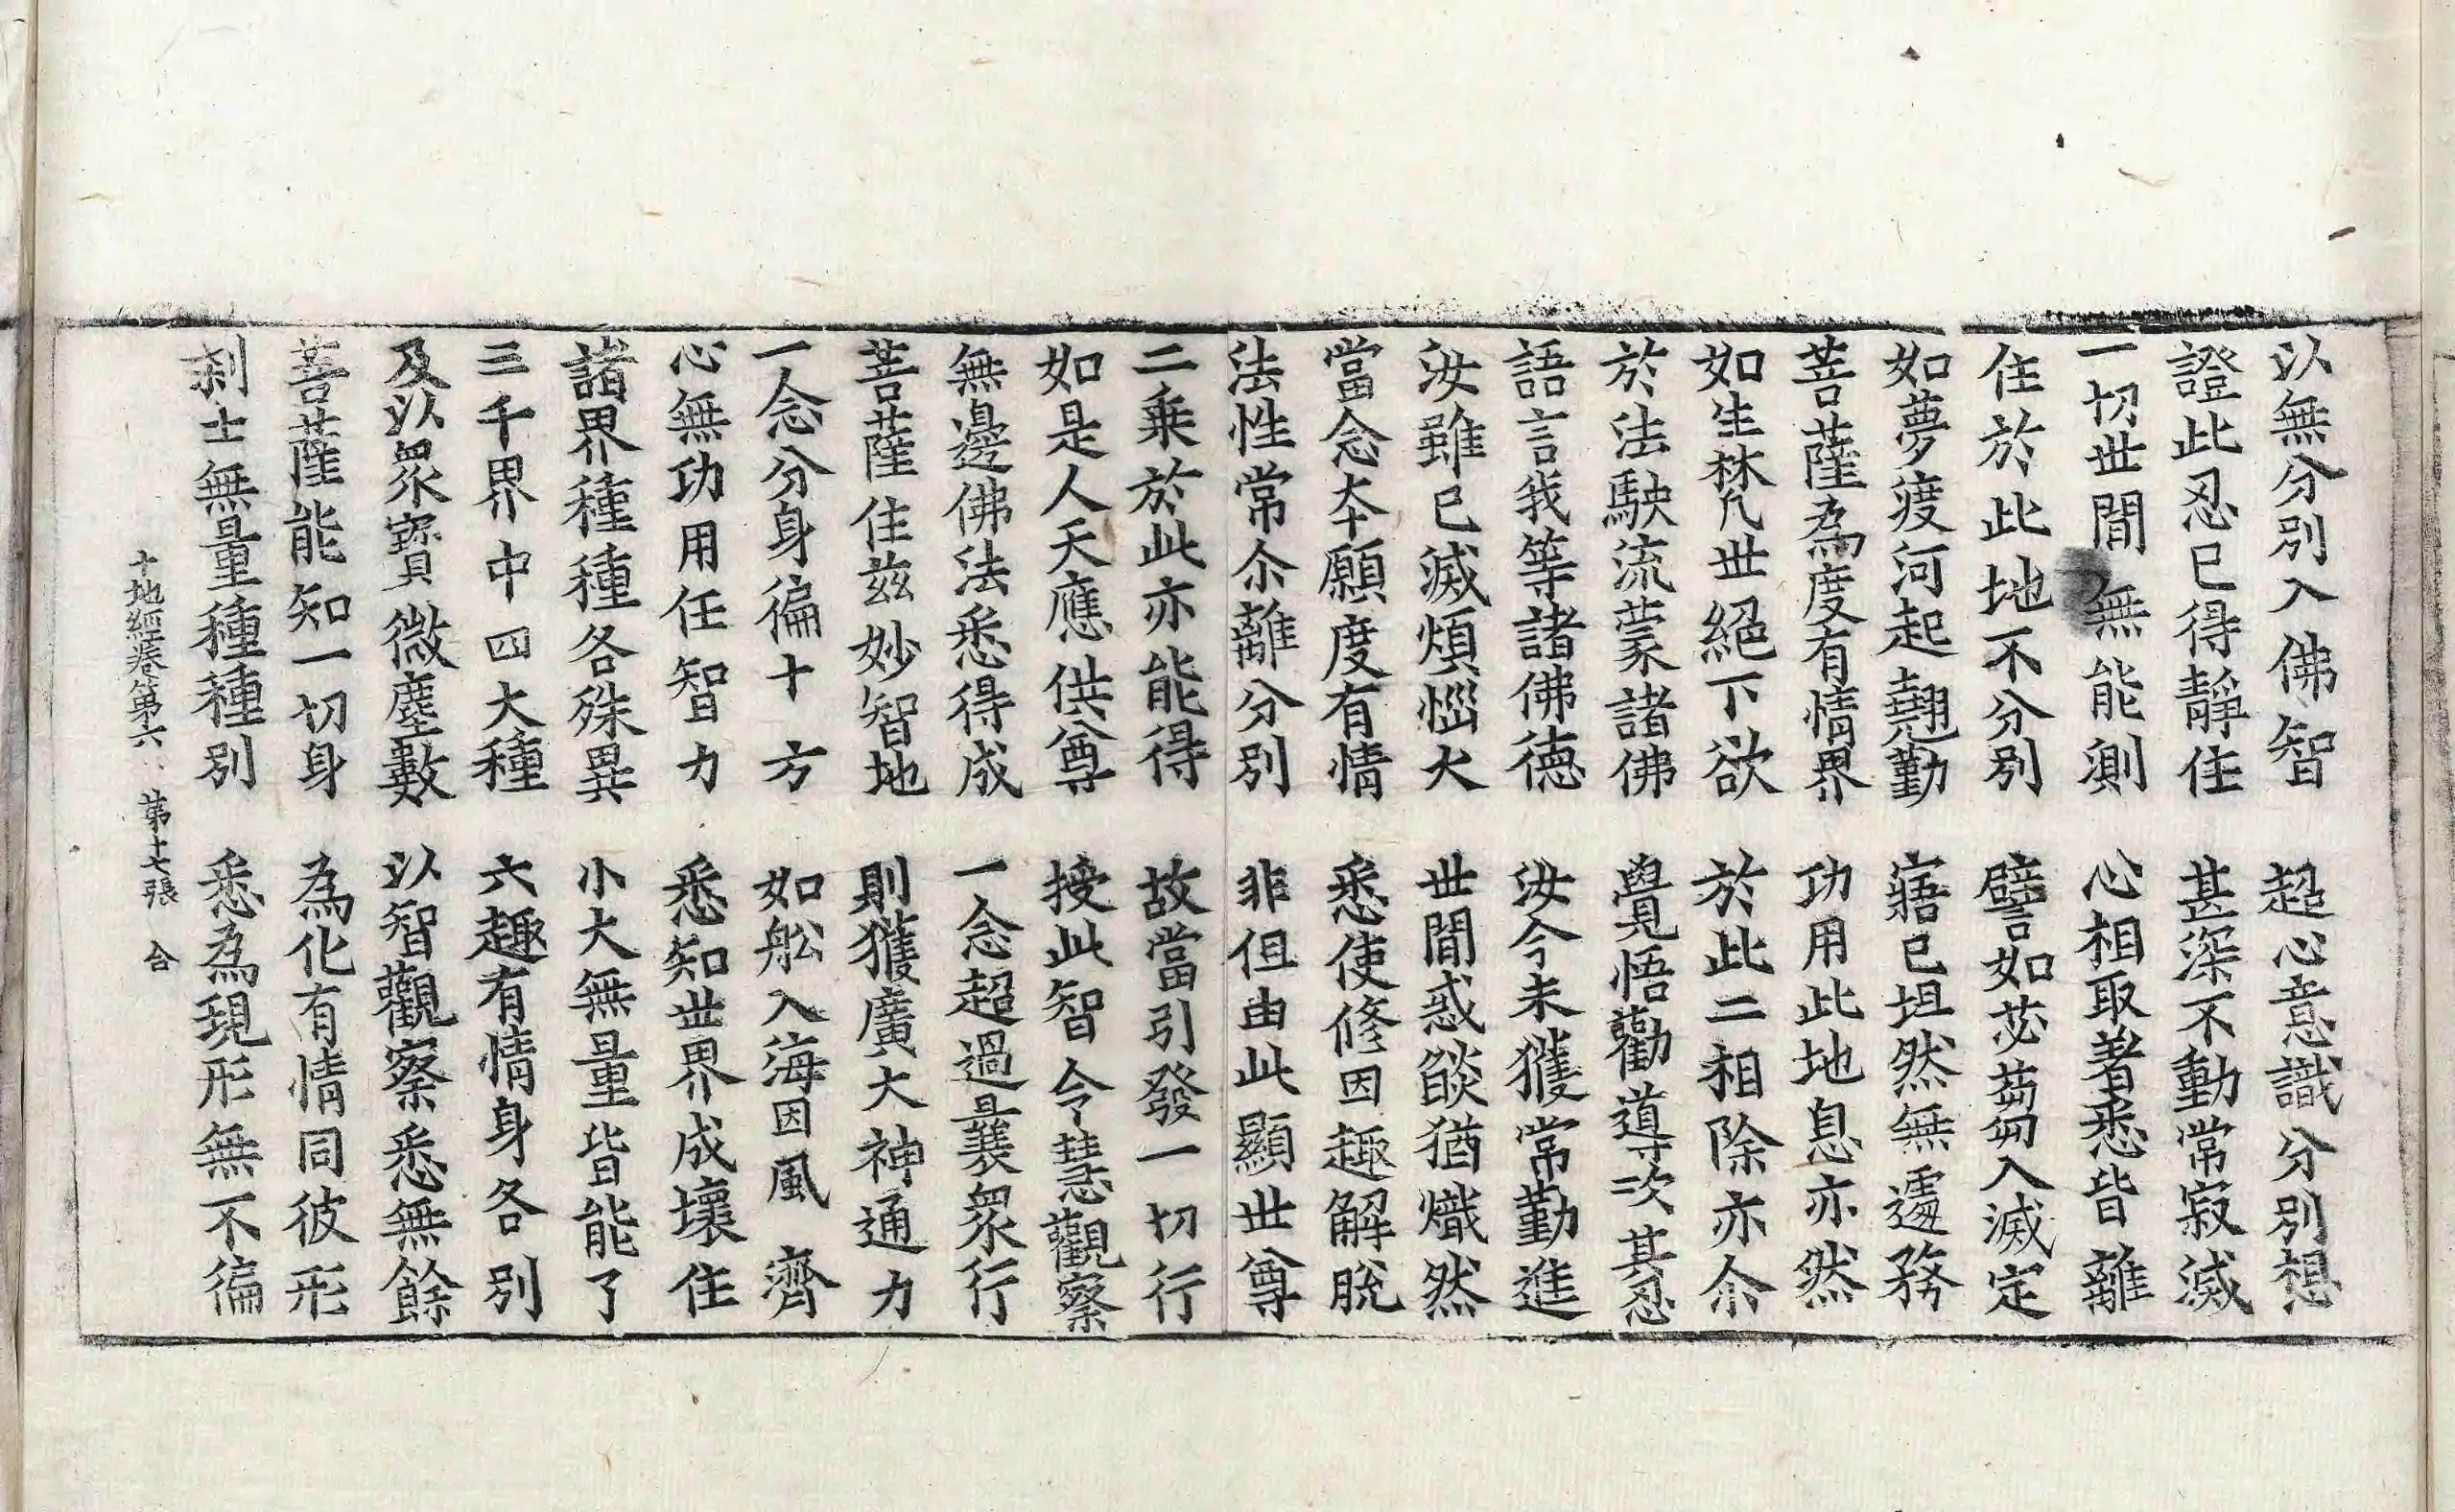 以無分別入佛智　超心意識分別想
證此忍已得靜住　甚深不動常寂滅
一切世閒無能測　心相取著悉皆離
住於此地不分別　譬如苾芻入滅定
如夢渡河起翹勤　寤已坦然無遽務
菩薩為度有情界　功用此地息亦然
如生梵世絕下欲　於此二相除亦尒
於法駛流蒙諸佛　覺悟勸導次其忍
語言我等諸佛德　汝今未獲常勤進
汝雖已滅煩惱火　世閒惑燄猶熾然
當念本願度有情　悉使修因趣解脫
法性常尒離分別　非但由此顯世尊
二乘於此亦能得　故當引發一切行
如是人天應供尊　授此智令慧觀察
無邊佛法悉得成　一念超過曩衆行
菩薩住茲妙智地　則獲廣大神通力
一念分身徧十方　如舩入海因風濟
心無功用任智力　悉知世界成壞住
諸界種種各殊異　小大無量皆能了
三千界中四大種　六趣有情身各別
及以衆寶微塵數　以智觀察悉無餘
菩薩能知一切身　為化有情同彼形
刹士無量種種別　悉為現形無不徧
十地經卷第六　第十七張　合